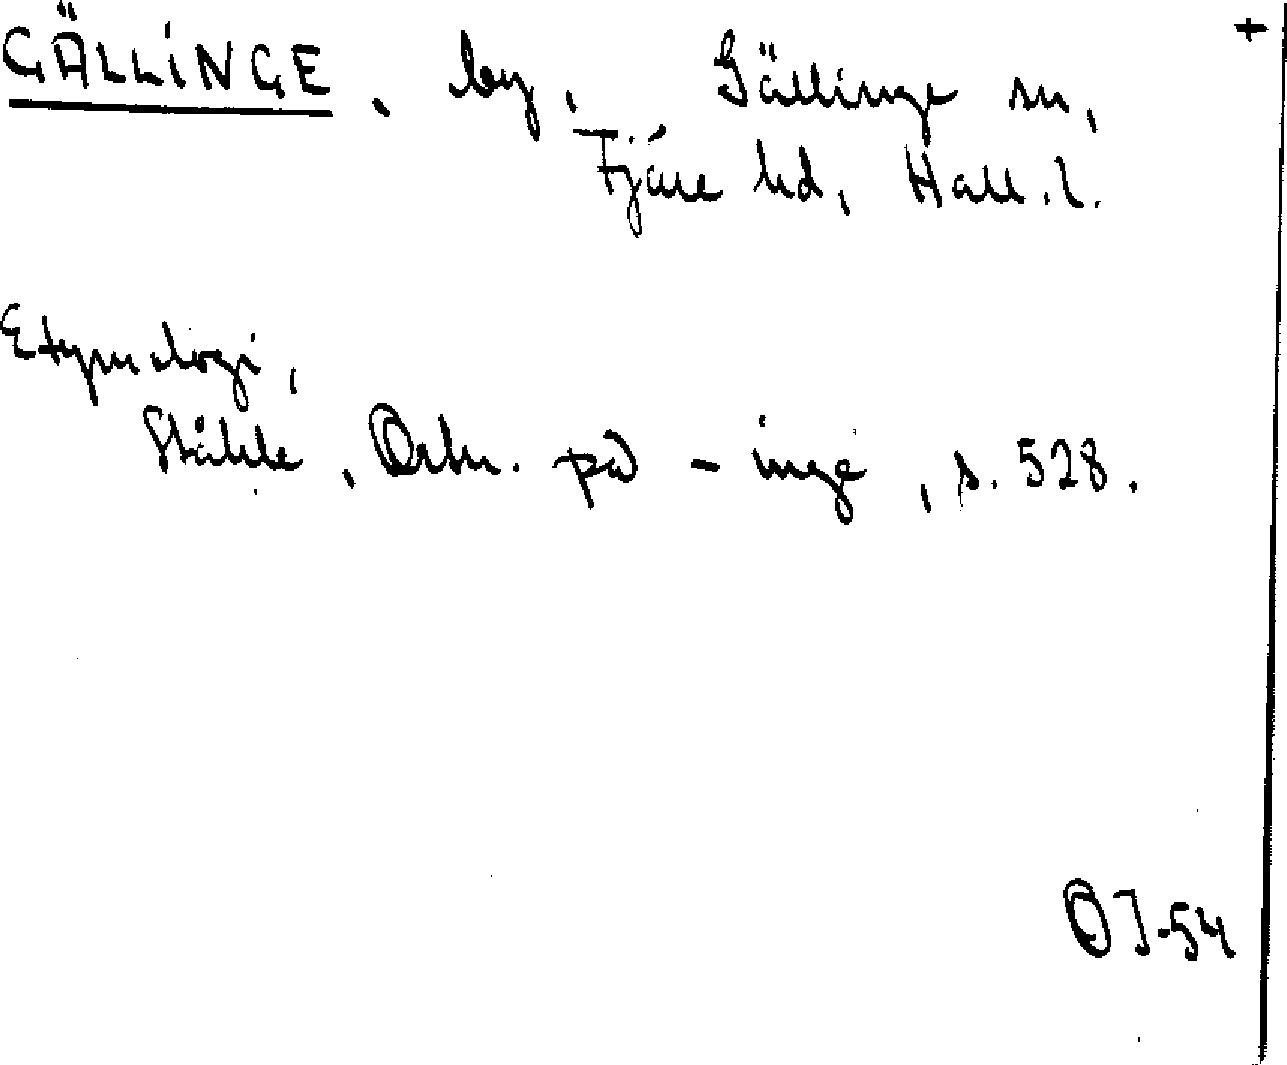 +
GÄLLINGE, by, Gällinge sn,
Fjäre hd, Hall. l.
Etymologi,
Ståhle, Ortn. på -inge, s. 528.
OJ-54